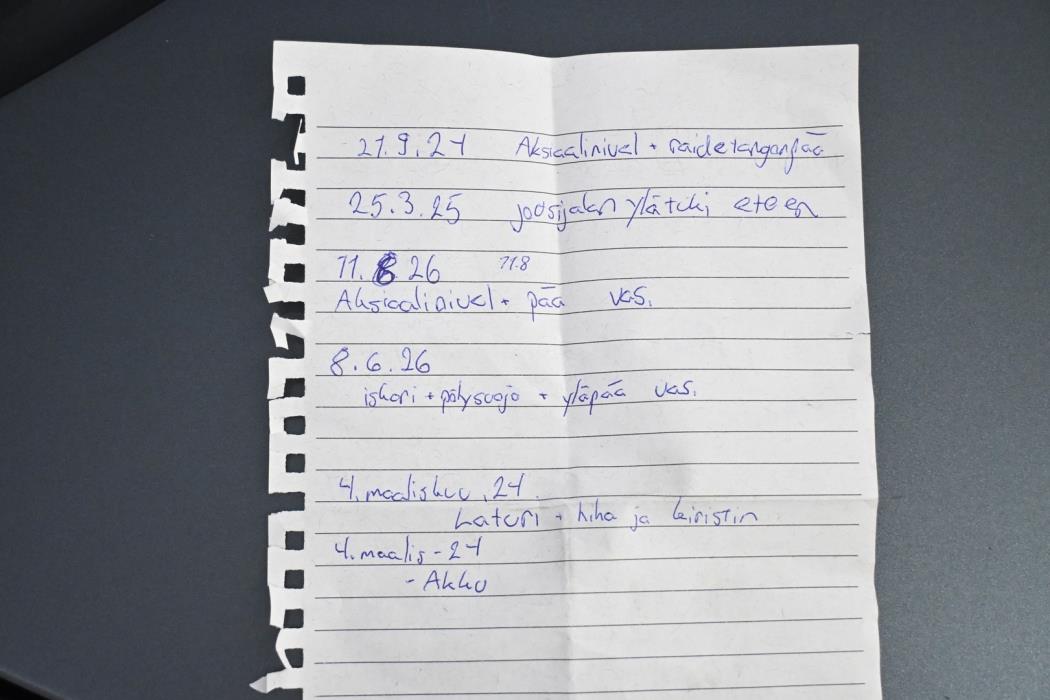 21.9.24 Aksiaalinivel + raidetanganpää
25.3.25 jousijalan ylätuki eteen
11.8 26 11.8
Aksiaalinivel + pää vas.
8.6.26
iskari + pölysuoja + yläpää vas.
4. maaliskuu .24.
Laturi + hihna ja kiristin
4. maalis - 24
- Akku